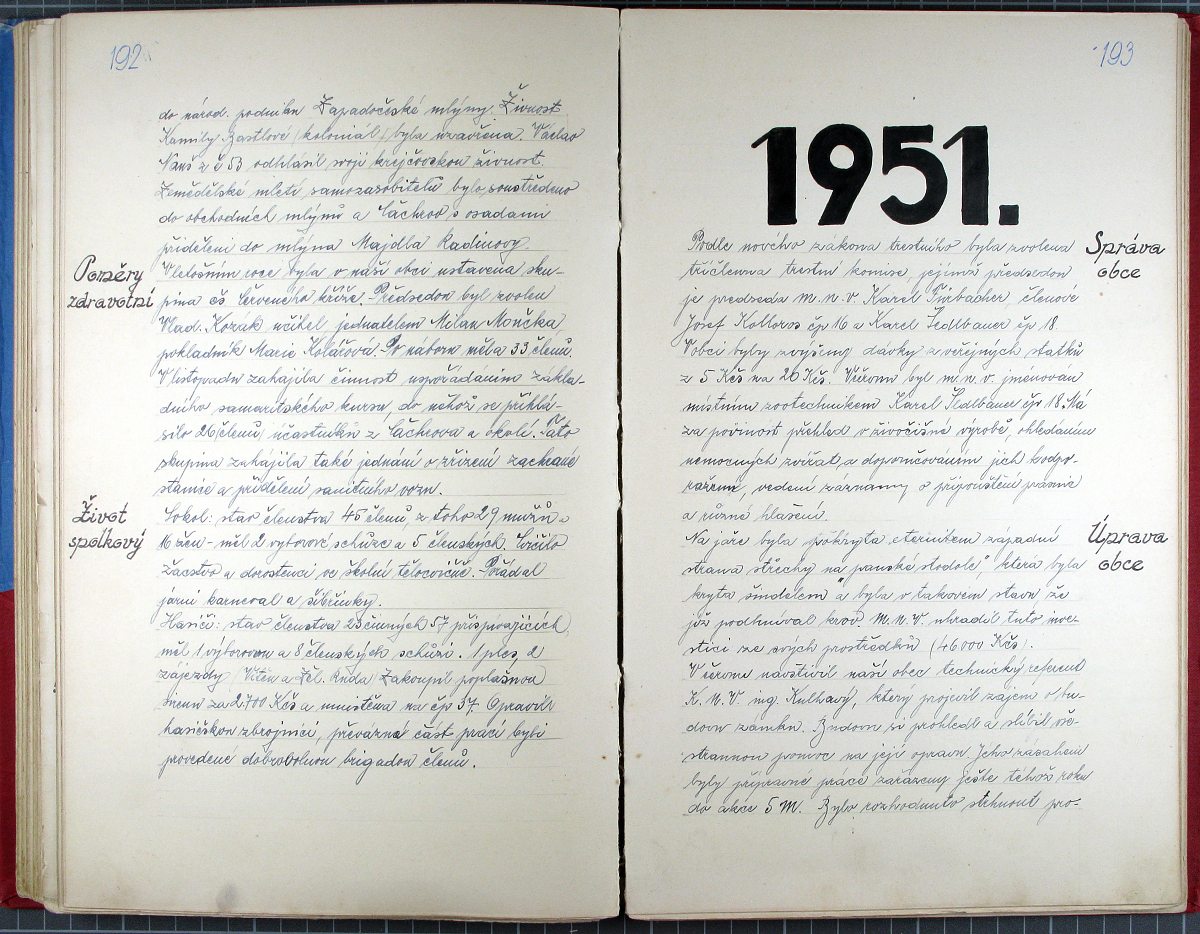 192
do národ. podniku Západočeské mlýny. Živnost
Kamily Bastlové (koloniál) byla uzavřena. Václav
z č 53 odhlásil svoji krejčovskou živnost.
Zemědělské mletí samozásobitelů bylo soustředěno
do obchodních mlýnů a Čáchrov s osadami
přiděleni do mlýna Majdla Radinovy.
Poměry
zdravotní
V letošním roce byla v naší obci ustavena sku-
pina čs červeného kříže. Předsedou byl zvolen
Vlad. Kozák učitel, jednatelem Milan Moučka,
pokladník Marie Kolářová. Po náboru měla 33 členů.
V listopadu zahájila činnost uspořádáním základ-
dního samaritského kursu, do něhož se přihlá-
silo 26 členů účastníků z Čáchrova a okolí. Tato
skupina zahájila také jednání o zřízení záchrané
stanice a přidělení sanitního vozu.
Život
spolkový
Sokol: stav členstva 45 členů z toho 29 mužů a
16 žen - měl 2 výborové schůze a 5 členských. Cvičilo
žactvo a dorostenci ve školní tělocvičně. Pořádal
jarní karneval a šibřinky.
Hasiči: stav členstva 23 činných 57 přispívajících,
měl 1 výborovou a 8 členských schůzí. 1 ples, 2
zájezdy (Vítěň a Žel. Ruda Zakoupil poplašnou
sirenu za 2.700 Kčs a umístěna na čp 37. Opravili
hasičskou zbrojnici, převážná část prací byli
provedené dobrovolnou brigadou členů.
193
1951.
Správa
obce
Podle nového zákona trestního byla zvolena
tříčlenna trestní komise, jejímž předsedou
je předseda m.n.v Karel Fürbacher, členové
Josef Kolloros čp 16 a Karel Šedlbauer čp 18.
V obci byly zvýšeny dávky z veřejných statků
z 5 Kčs na 20 Kčs. V červnu byl m.n.v. jmenován
místním zootechnikem Karel Šedlbauer čp 18. Má
za povinost přehled o živočišné výrobě, ohledáním
nemocných zvířat, a doporučováním jich k odpo-
ražení, vedení záznamy o připouštění prasnic
a různé hlašení.
Úprava
obce
Na jaře byla pokryta eternitem západní
strana střechy na "panské stodole", která byla
kryta šindelem a byla v takovém stavu že
již podhníval krov. M.n.V. uhradil tuto inve-
stici ze svých prostředků (46000 Kčs).
V červnu navštívil naši obec technický referent
K.N.V. ing. Kulhavy, který projevil zájem o bu-
dovu zámku. Budovu si prohlédl a slíbil vše-
strannou pomoc na její opravu. Jeho zásahem
byly přípravné práce zařazeny ještě téhož roku
do akce 5 M. Bylo rozhodnuto stehnout pro-